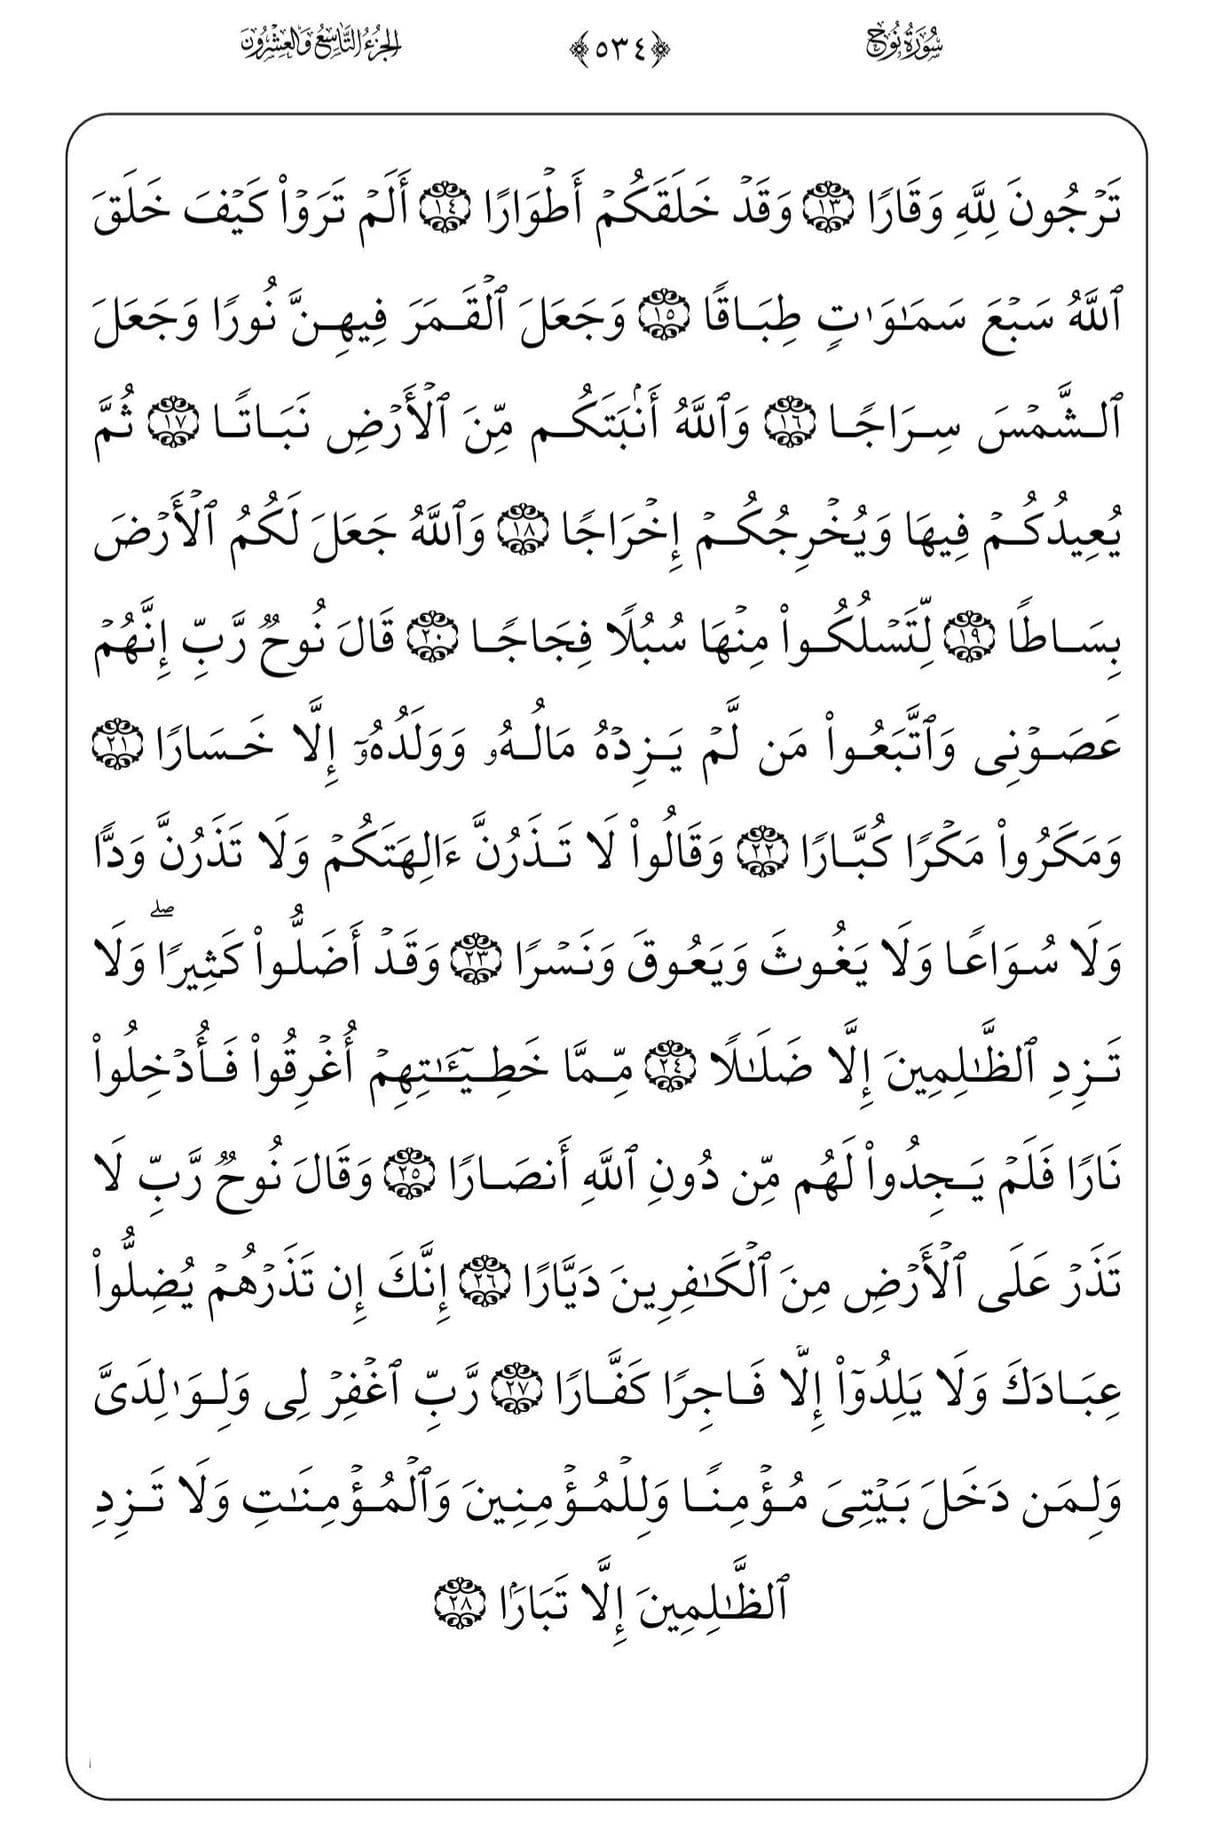 سُورَةُ نُوحٍ ﴿٥٣٤﴾ الجُزْءُ التَّاسِعُ وَالعِشْرُونَ
تَرۡجُونَ لِلَّهِ وَقَارٗا ١٣ وَقَدۡ خَلَقَكُمۡ أَطۡوَارًا ١٤ أَلَمۡ تَرَوۡاْ كَيۡفَ خَلَقَ
ٱللَّهُ سَبۡعَ سَمَٰوَٰتٖ طِبَاقٗا ١٥ وَجَعَلَ ٱلۡقَمَرَ فِيهِنَّ نُورٗا وَجَعَلَ
ٱلشَّمۡسَ سِرَاجٗا ١٦ وَٱللَّهُ أَنۢبَتَكُم مِّنَ ٱلۡأَرۡضِ نَبَاتٗا ١٧ ثُمَّ
يُعِيدُكُمۡ فِيهَا وَيُخۡرِجُكُمۡ إِخۡرَاجٗا ١٨ وَٱللَّهُ جَعَلَ لَكُمُ ٱلۡأَرۡضَ
بِسَاطٗا ١٩ لِّتَسۡلُكُواْ مِنۡهَا سُبُلٗا فِجَاجٗا ٢٠ قَالَ نُوحٞ رَّبِّ إِنَّهُمۡ
عَصَوۡنِي وَٱتَّبَعُواْ مَن لَّمۡ يَزِدۡهُ مَالُهُۥ وَوَلَدُهُۥٓ إِلَّا خَسَارٗا ٢١
وَمَكَرُواْ مَكۡرٗا كُبَّارٗا ٢٢ وَقَالُواْ لَا تَذَرُنَّ ءَالِهَتَكُمۡ وَلَا تَذَرُنَّ وَدّٗا
وَلَا سُوَاعٗا وَلَا يَغُوثَ وَيَعُوقَ وَنَسۡرٗا ٢٣ وَقَدۡ أَضَلُّواْ كَثِيرٗاۖ وَلَا
تَزِدِ ٱلظَّٰلِمِينَ إِلَّا ضَلَٰلٗا ٢٤ مِّمَّا خَطِيٓـَٰٔتِهِمۡ أُغۡرِقُواْ فَأُدۡخِلُواْ
نَارٗا فَلَمۡ يَجِدُواْ لَهُم مِّن دُونِ ٱللَّهِ أَنصَارٗا ٢٥ وَقَالَ نُوحٞ رَّبِّ لَا
تَذَرۡ عَلَى ٱلۡأَرۡضِ مِنَ ٱلۡكَٰفِرِينَ دَيَّارًا ٢٦ إِنَّكَ إِن تَذَرۡهُمۡ يُضِلُّواْ
عِبَادَكَ وَلَا يَلِدُوٓاْ إِلَّا فَاجِرٗا كَفَّارٗا ٢٧ رَّبِّ ٱغۡفِرۡ لِي وَلِوَٰلِدَيَّ
وَلِمَن دَخَلَ بَيۡتِيَ مُؤۡمِنٗا وَلِلۡمُؤۡمِنِينَ وَٱلۡمُؤۡمِنَٰتِ وَلَا تَزِدِ
ٱلظَّٰلِمِينَ إِلَّا تَبَارَۢا ٢٨